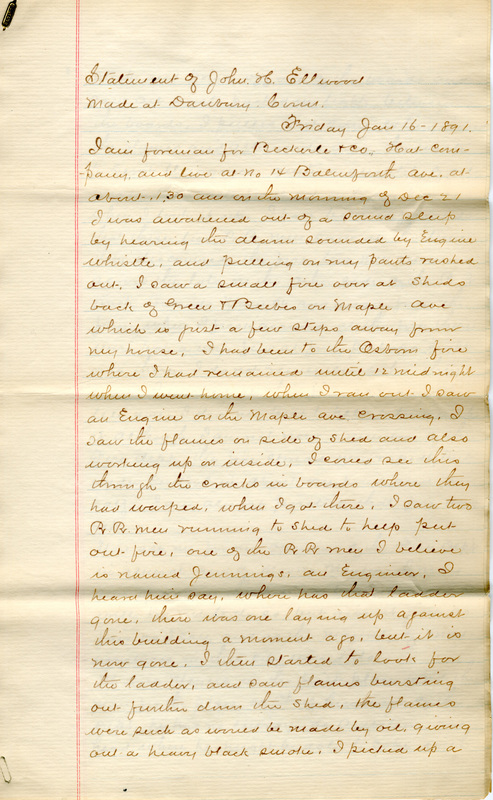 Statement of John. H. Ellwood
Made at Danbury. Conn.
Friday Jan 16 - 1891.
I am foreman for Beckerle & Co., Hat Com-
pany, and live at No 14 Balmforth Ave. at
about 1.30 am on the morning of Dec 21
I was awakened out of a sound sleep
by hearing the alarm sounded by Engine
whistle, and pulling on my pants rushed
out. I saw a small fire over at Sheds
back of Green & Beebes on Maple Ave
which is just a few steps away from
my house. I had been to the Osborn fire
where I had remained until 12 midnight
when I went home, when I ran out I saw
an Engine on the Maple ave. crossing. I
saw the flames on side of shed and also
working up on inside. I could see this
through the cracks in boards where they
had warped, when I got there, I saw two
R.R. men running to shed to help put
out fire, one of the R.R. men I believe
is named Jennings, an Engineer, I
heard him say, where has that ladder
gone, there was one laying up against
this building a moment ago, but it is
now gone. I then started to look for
the ladder, and saw flames bursting
out further down the shed, the flames
were such as would be made by oil, giving
out a heavy black smoke. I picked up a